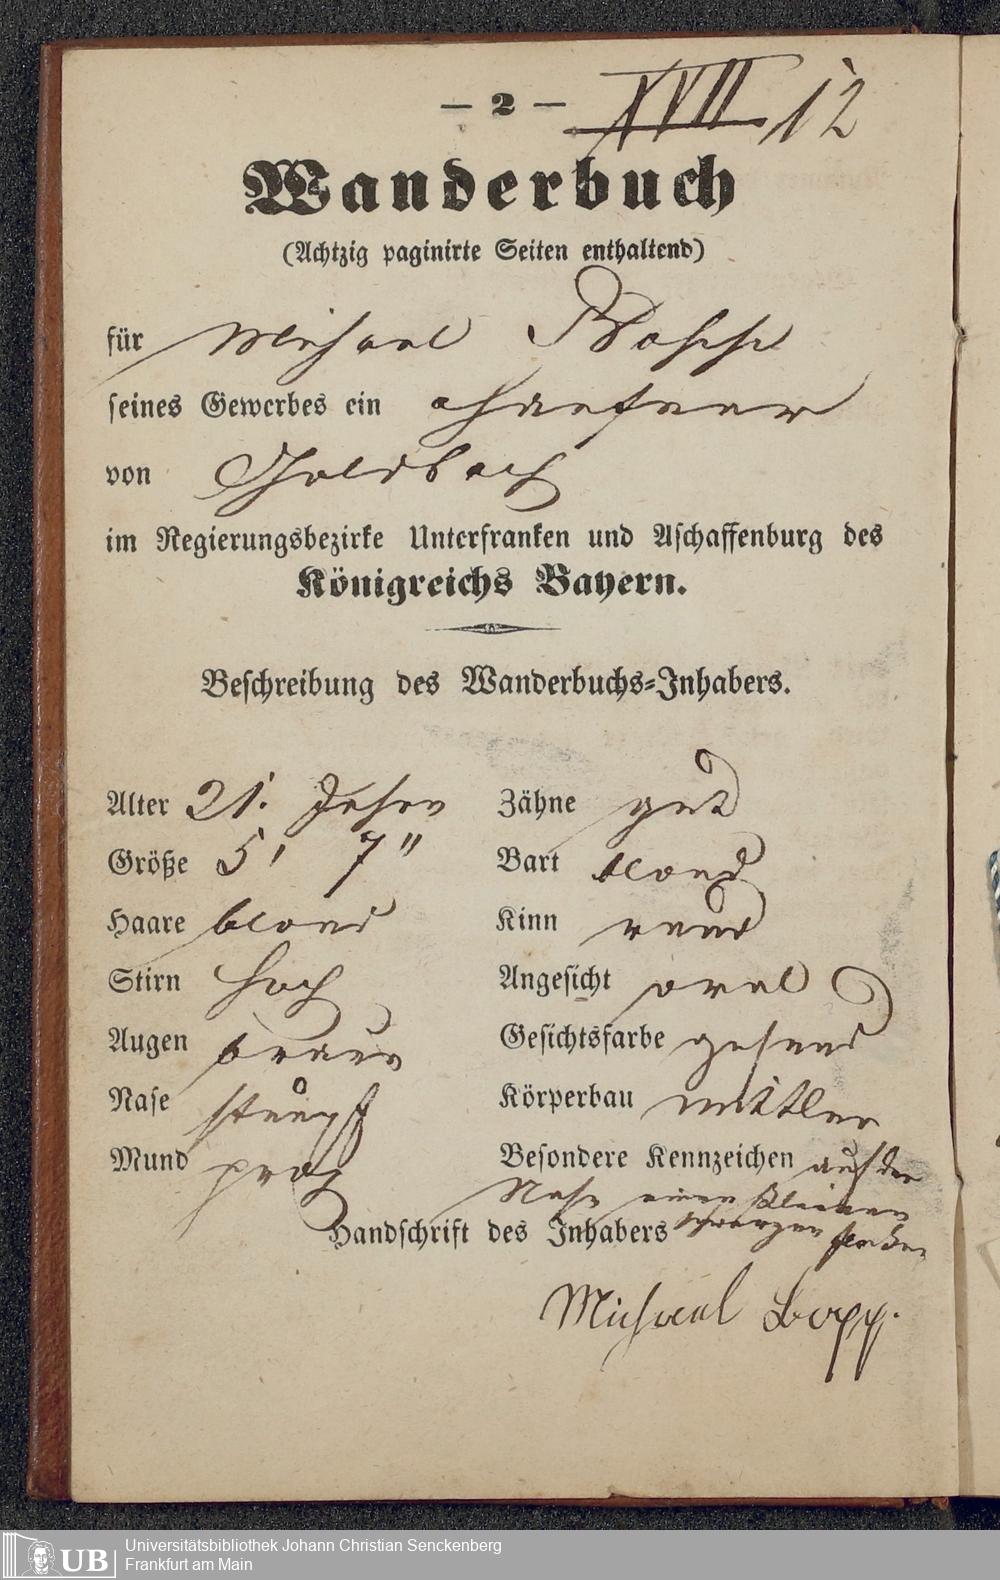 — 2 — XVII 12
Wanderbuch
(Achtzig paginirte Seiten enthaltend)
für Michael Bopp
seines Gewerbes ein
von Goldbach
im Regierungsbezirke Unterfranken und Aschaffenburg des
Königreichs Bayern.
Beschreibung des Wanderbuchs-Inhabers.
Alter 21. Jahre
Größe 5' 7"
Haare blond
Stirn hoch
Augen braun
Nase stumpf
Mund prop
Zähne gut
Bart blond
Kinn rund
Angesicht oval
Gesichtsfarbe gesund
Körperbau mittler
Besondere Kennzeichen auf der
Nase einen kleinen
schwarzen Flecken
Handschrift des Inhabers
Michael Bopp.
UB Universitätsbibliothek Johann Christian Senckenberg
Frankfurt am Main